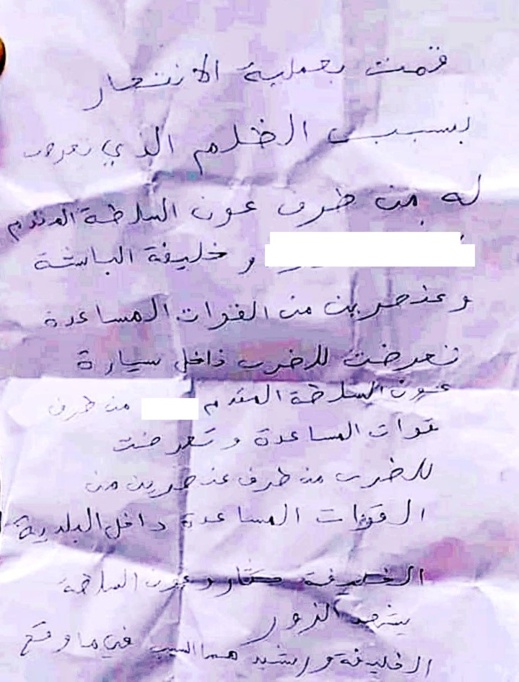 قمت بعملية الانتحار
بسبب الظلم الذي تعرضت
له من طرف عون السلطة المقدم
و خليفة الباشة
وعنصرين من القوات المساعدة
تعرضت للضرب داخل سيارة
عون السلطة المقدم من طرف
قوات المساعدة و تعرضت
للضرب من طرف عنصرين من
القوات المساعدة داخل البلدية
الخليفة وعون السلطة
الزور
الخليفة و رشيد هما السبب في ما وقع